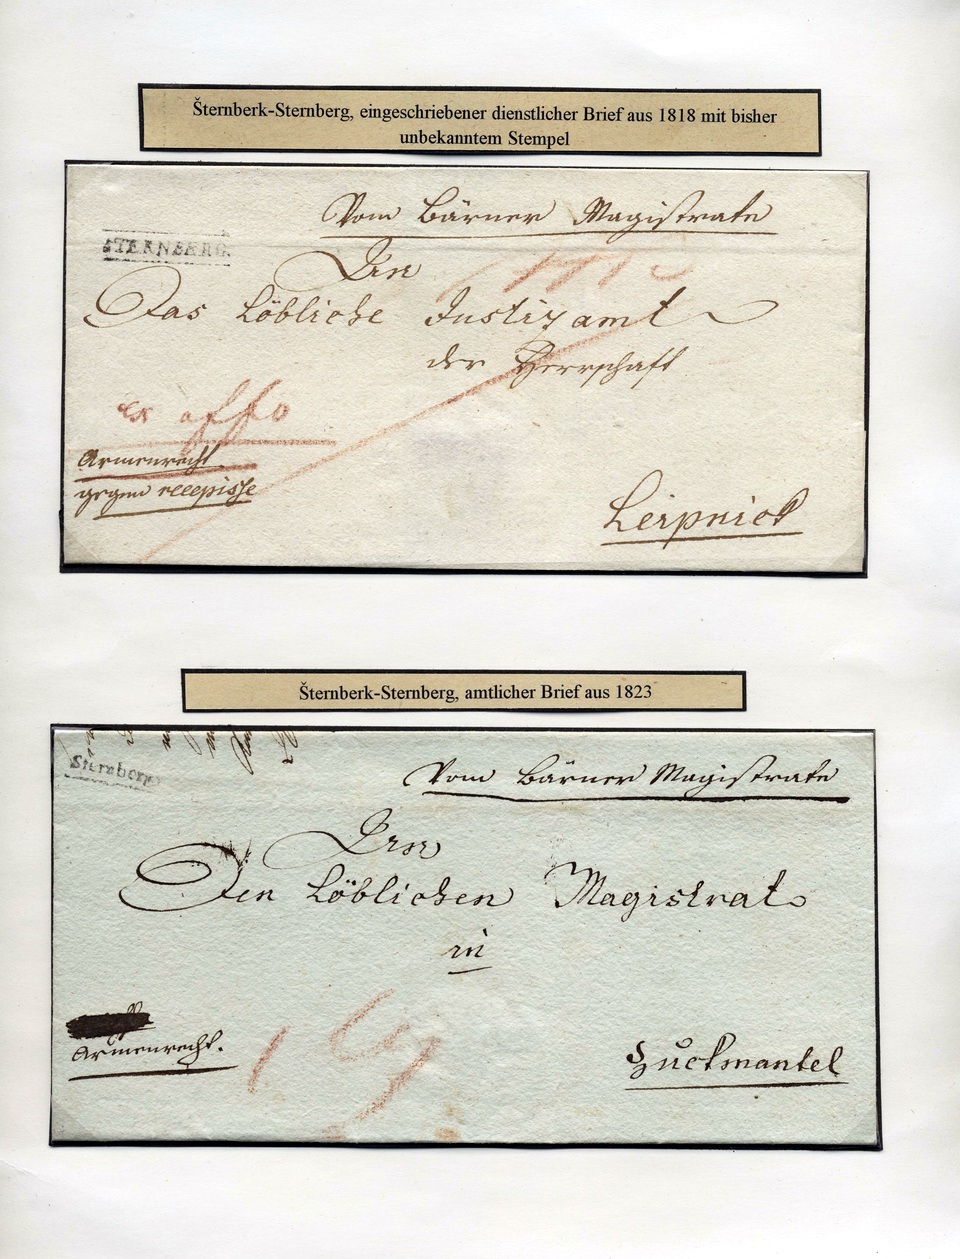 Šternberk-Sternberg, eingeschriebener dienstlicher Brief aus 1818 mit bisher
unbekanntem Stempel
Vom Bärner Magistrate
STERNBERG.
An
Das Löbliche Justizamt
der Herrschaft
ex offo
Armenrecht
gegen recepisse
Leipnick
Šternberk-Sternberg, amtlicher Brief aus 1823
Sternberg
Vom Bärner Magistrate
An
Den Löblichen Magistrat
in
Armenrecht.
Zuckmantel